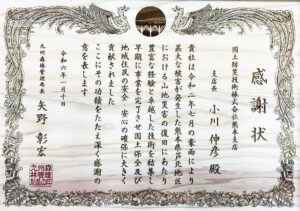 感謝状
国土防災技術株式会社熊本支店
支店長
小川伸彦殿
貴社は令和二年七月の豪雨により
甚大な被害が発生した熊本県芦北地区
における山地災害の復旧にあたり
豊富な経験と卓越した技術を結集し
早期に事業を完了させ国土保全及び
地域住民の安全・安心の確保に大きく
貢献されました
ここにその功績をたたえ深く感謝の
意を表します
令和六年一月十日
九州森林管理局長
矢野彰宏